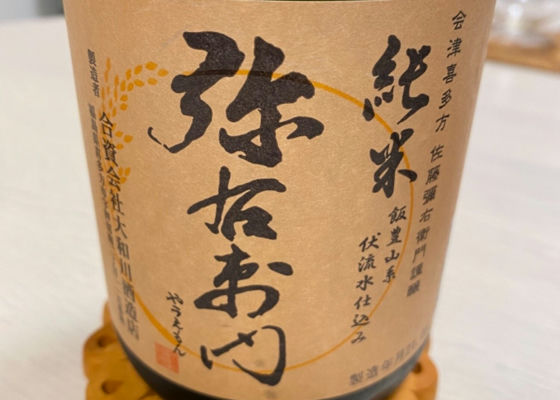 会津喜多方 佐藤彌右衛門謹醸
純米
飯豊山系
伏流水仕込み
弥右衛門
やうえもん
合資会社大和川酒造店
製造者
製造年月